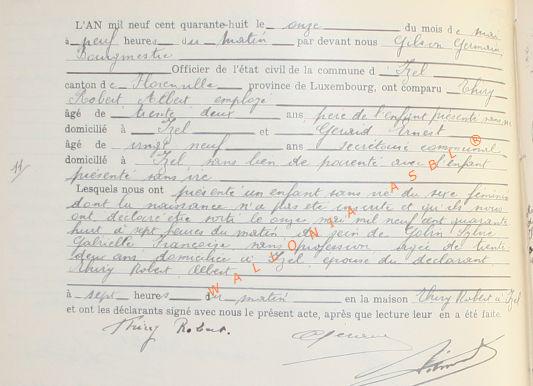 L'AN mil neuf cent quarante-huit le onze du mois de mai
à neuf heures du matin par devant nous Gilson Germain
Bourgmestre
Officier de l'état civil de la commune d'Izel
canton de Florenville province de Luxembourg, ont comparu Thiry
Robert Albert employé
âgé de trente deux ans, père de l'enfant présenté sans vie
domicilié à Izel et Gérard Ernest
âgé de vingt neuf ans secrétaire communal
domicilié à Izel sans lien de parenté avec l'enfant
présenté sans vie
11/
Lesquels nous ont présenté un enfant sans vie du sexe féminin
dont la naissance n'a pas été inscrite et qu'ils nous
ont déclaré être sorti le onze mai mil neuf cent quarante
huit à sept heures du matin du sein de
Gabrielle Françoise, sans profession âgée de trente
deux ans domiciliée à Izel, épouse du déclarant
Thiry Robert Albert
à sept heures du matin en la maison Thiry Robert à Izel
et ont les déclarants signé avec nous le présent acte, après que lecture leur en a été faite.
Thiry Robert.
WALLONIA ASBL ®